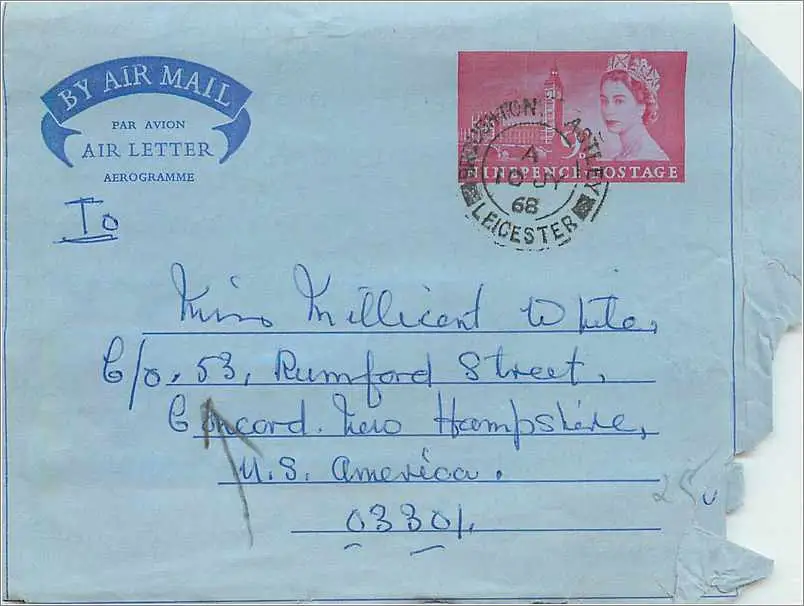 BY AIR MAIL
PAR AVION
AIR LETTER
AEROGRAMME
NINEPENCE POSTAGE
BROUGHTON ASTLEY
A
10 JY
68
LEICESTER
To
Miss Millicent White,
C/o. 53, Rumford Street,
Concord. New Hampshire,
U.S. America.
03301.